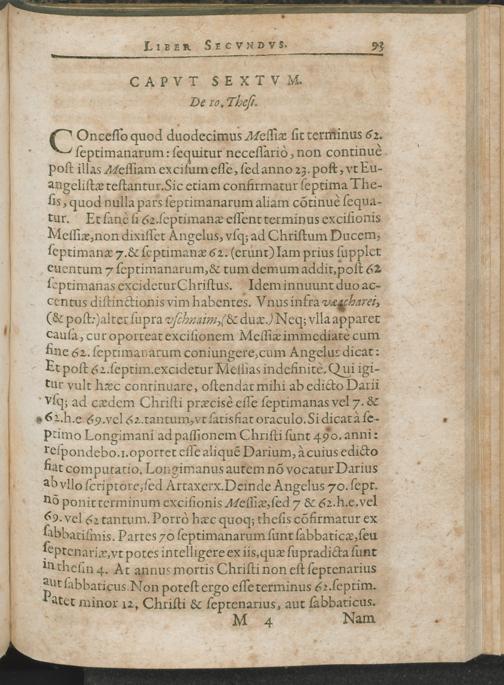 LIBER SECVNDVS. 93
CAPVT SEXTVM.
De 10. Thesi.
COncesso quod duodecimus Messiæ sit terminus 62.
septimanarum: sequitur necessariò, non continuè
post illas Messiam excisum esse, sed anno 23. post, vt Eu-
angelistæ testantur. Sic etiam confirmatur septima The-
sis, quod nulla pars septimanarum aliam cōtinuè sequa-
tur. Et sanè si 62. septimanæ essent terminus excisionis
Messiæ, non dixisset Angelus, vsq; ad Christum Ducem,
septimanæ 7. & septimanæ 62. (erunt) Iam prius supplet
euentum 7 septimanarum, & tum demum addit, post 62
septimanas excidetur Christus. Idem innuunt duo ac-
centus distinctionis vim habentes. Vnus infra veacharei,
(& post:) alter supra vschnaim, (& duæ.) Neq; vlla apparet
causa, cur oporteat excisionem Messiæ immediatè cum
fine 62. septimanarum coniungere, cum Angelus dicat:
Et post 62. septim. excidetur Messias indefinitè. Qui igi-
tur vult hæc continuare, ostendat mihi ab edicto Darii
vsq; ad cædem Christi præcisè esse septimanas vel 7. &
62. h. e 69. vel 62. tantum, vt satisfiat oraculo. Si dicat à se-
ptimo Longimani ad passionem Christi sunt 490. anni:
respondebo. 1. oportet esse aliquē Darium, à cuius edicto
fiat computatio, Longimanus autem nō vocatur Darius
ab vllo scriptore, sed Artaxerx. Deinde Angelus 70. sept.
nō ponit terminum excisionis Messiæ, sed 7 & 62. h. e. vel
69. vel 62 tantum. Porrò hæc quoq; thesis cōfirmatur ex
sabbatismis. Partes 70 septimanarum sunt sabbaticæ, seu
septenariæ, vt potes intelligere ex iis, quæ supra dicta sunt
in thesin 4. At annus mortis Christi non est septenarius
aut sabbaticus. Non potest ergo esse terminus 62. septim.
Patet minor 12, Christi & septenarius, aut sabbaticus.
M 4 Nam